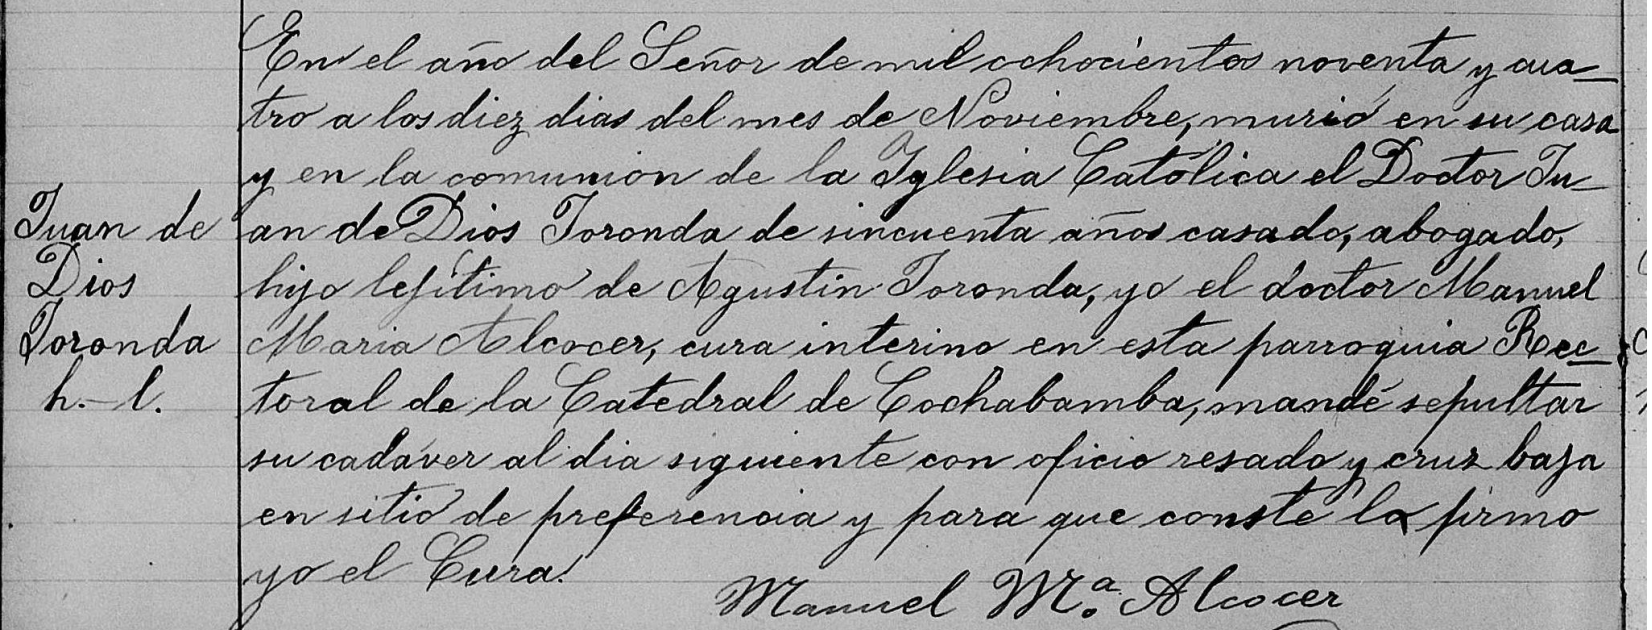 En el año del Señor de mil ochocientos noventa y cua-
tro a los diez dias del mes de Noviembre, murió en su casa
y en la comunion de la Iglesia Católica el Doctor Ju-
an de Dios Joronda de sincuenta años casado, abogado,
hijo lejítimo de Agustin Joronda, yo el doctor Manuel
Maria Alcocer, cura interino en esta parroquia Rec-
toral de la Catedral de Cochabamba, mandé sepultar
su cadáver al dia siguiente con oficio resado y cruz baja
en sitio de preferencia y para que conste la firmo
yo el Cura.
Manuel Mª. Alcocer
Juan de
Dios
Joronda
h.-l.